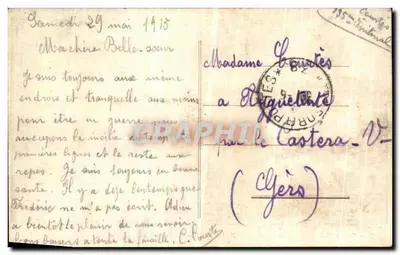 Samedi 29 mai 1915
Ma chère Belle-soeur
Je suis toujours au même
endrois et tranquelle au moins
pour être en guerre nous
occupons la moitié du temps
premières lignes et le reste au
repos. Je suis toujours en bonne
santé. Il y a déjà longtemps que
Frédéric ne m'a pas écrit. Adieu
a bientot le plaisir de nous revoir
bons baisers a toute la famille. C.
Courtès
135me Territorial
Madame Courtès
a
par le Castera-V-
(Gers)
CPARAMA